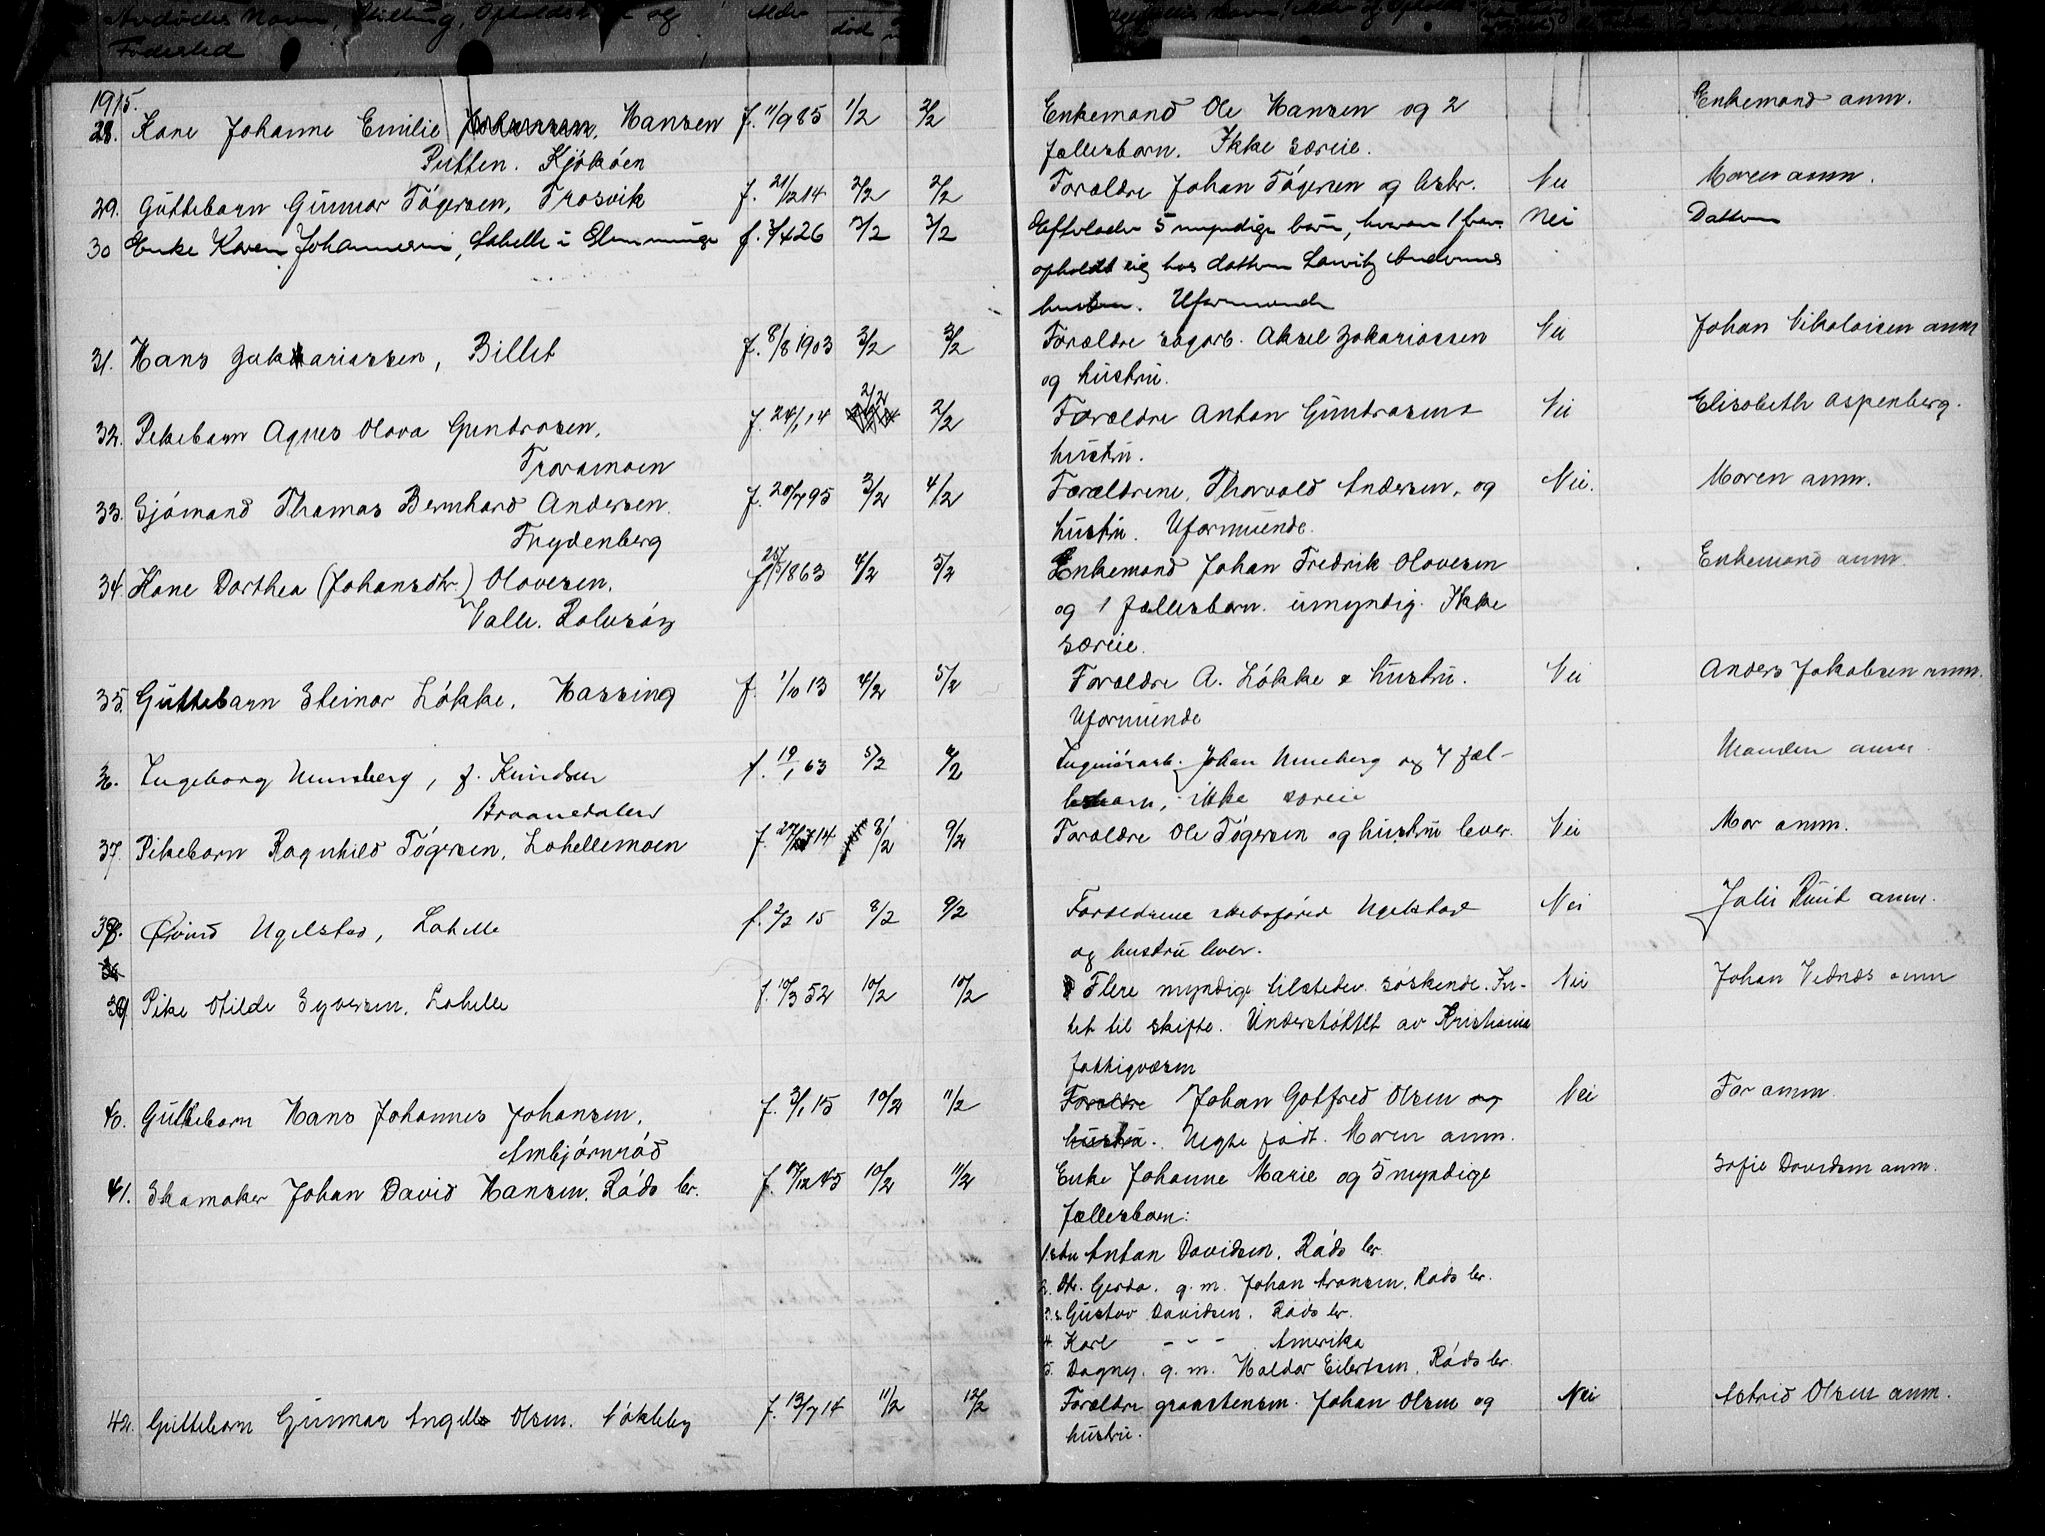 Avdødes Navn, Stilling, Opholdssted og Alder død
Fødested
1915.
28. Kone Johanne Emilie Hansen f. 11/9 85 1/2 2/2 Enkemand Ole Hansen og 2 Enkemand anm.
Putten. Kjøkøen fællesbarn. Ikke særeie.
29. Guttebarn Gunnar Tøgersen, Trosvik f. 21/12 14 2/2 2/2 Forældre Johan Tøgersen og Nei Moren anm.
30 Enke Karen Johannesen, Labelle i Glemminge f. 3/4 26 2/2 3/2 Efterlader 5 myndige barn, hvorav 1 Nei Datteren
opholdt sig hos datteren Lauritz Andersens
hustru. Uformuende
31. Hans Zakariassen, Billet f. 8/8 1903 3/2 3/2 Forældre sagarb. Aksel Zakariassen Nei Johan Nikolaisen anm
og hustru.
32. Pikebarn Agnes Olava Gundrosen, f. 24/1 14 2/2 2/2 Forældre Anton Gundrosen & Nei Elisabeth Aspenberg.
Traramoen hustru.
33. Sjømand Thomas Bernhard Andersen f. 20/7 95 3/2 4/2 Forældrene, Thorvald Andersen, og Nei. Moren anm.
Frydenberg hustru. Uformuende.
34. Kone Dorthea (Johansdtr.) Olavesen. f. 25/5 1863 4/2 5/2 Enkemand Johan Fredrik Olavesen Enkemand anm.
Valle. Rolvsøy og 1 fællesbarn. umyndig. Ikke
særeie.
35. Guttebarn Steinar Løkke, Hassing f. 1/10 13 4/2 5/2 Forældre A. Løkke & hustru. Nei Anders Jakobsen anm.
Uformuende
36. Ingeborg Unneberg, f. Knudsen f. 19/1 63 5/2 8/2 Johan Unneberg og 7 fæl- Manden anm.
Braanedalen lesbarn, ikke særeie
37. Pikebarn Ragnhild Tøgersen, Lahellemoen f. 27/12 14 8/2 9/2 Forældre Ole Tøgersen og hustru lever. Nei Mor anm.
38. Øivind Ugelstad, Lahelle f. 2/2 15 8/2 9/2 Forældrene skibsfører Ugelstad Nei Julie Ruud anm.
og hustru lever.
39 Pike Otilde Syversen, Lahelle f. 10/3 52 10/2 10/2 Flere myndige tilstedev. søskende. In- Nei Johan Vednes anm
tet til skifte. Understøttet av Kristiania
fattigvæsen
40. Guttebarn Hans Johannes Johansen, f. 3/1 15 10/2 11/2 Forældre Johan Gotfred Olsen og Nei Far anm.
Ambjørnrød hustru. Uegte født. Moren anm.
41. Skomaker Johan David Hansen. Røds br. f. 17/12 45 10/2 11/2 Enke Johanne Marie og 5 myndige Sofie Davidsen anm.
fællesbarn:
1. Anton Davidsen. Røds br.
2. Dtr. Gerda. g. m. Johan Aronsen. Røds br.
3. s. Gustav Davidsen. Røds br.
4. Karl - - - Amerika
5. Dagny. g. m. Haldor Eilertsen. Røds br.
42. Guttebarn Gunnar Angell Olsen. Nøkleby f. 13/7 14 11/2 12/2 Forældre graastensm. Johan Olsen og Nei Astrid Olsen anm.
hustru.